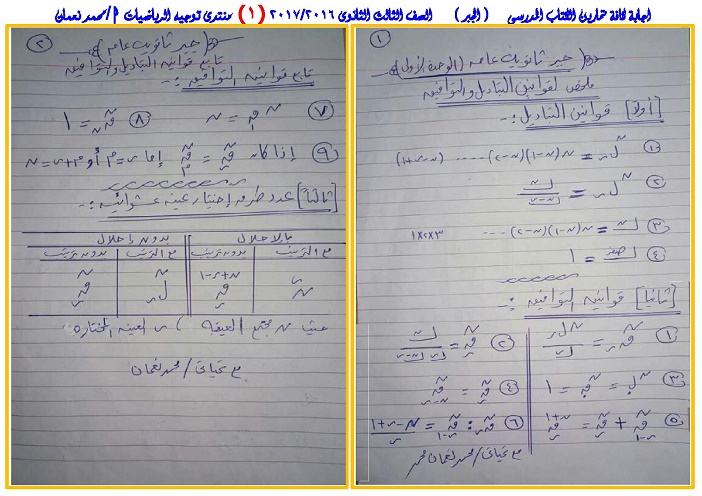 اجابة كافة تمارين الكتاب المدرسى (الجبر) الصف الثالث الثانوى ٢٠١٧/٢٠١٦ (١) منتدى توجيه الرياضيات أ/محمد نعمان
١
جبر ثانوية عامه (الوحدة الأولى)
ملخص لقوانين التباديل والتوافيق
أولاً] قوانين التباديل :-
١) ⁿلر = ن(ن-١)(ن-٢)......(ن-ر+١)
٢) ⁿلر = ⌊ن / ⌊ن-ر
٣) ⌊ن = ن(ن-١)(ن-٢)....٣×٢×١
٤) ⌊صفر = ١
ثانياً] قوانين التوافيق :-
١) ⁿقر = ⁿلر / ⌊ر
٢) ⁿقر = ⌊ن / ⌊ر ⌊ن-ر
٣) ⁿق. = ⁿقن = ١
٤) ⁿقر = ⁿقن-ر
٥) ⁿقر + ⁿقر-١ = ن+١قر
٦) ⁿقر : ⁿقر-١ = ن-ر+١ / ر
مع تحياتى / محمد نعمان
٢
جبر ثانوية عامه
تابع قوانين التباديل والتوافيق
تابع قوانين التوافيق :-
٧) ⁿق١ = ن
٨) ⁿقن = ١
٩) إذا كان ⁿقر = ⁿقم إما ر=م أو م+ر=ن
ثالثاً] عدد طرق إختيار عينه عشوائيه :-
بالإحلال بدون إحلال
مع الترتيب بدون ترتيب مع الترتيب بدون ترتيب
نʳ ن+ر-١قر ⁿلر ⁿقر
حيث ن مجتمع العينه ، ر العينه المختاره
مع تحياتى / محمد نعمان